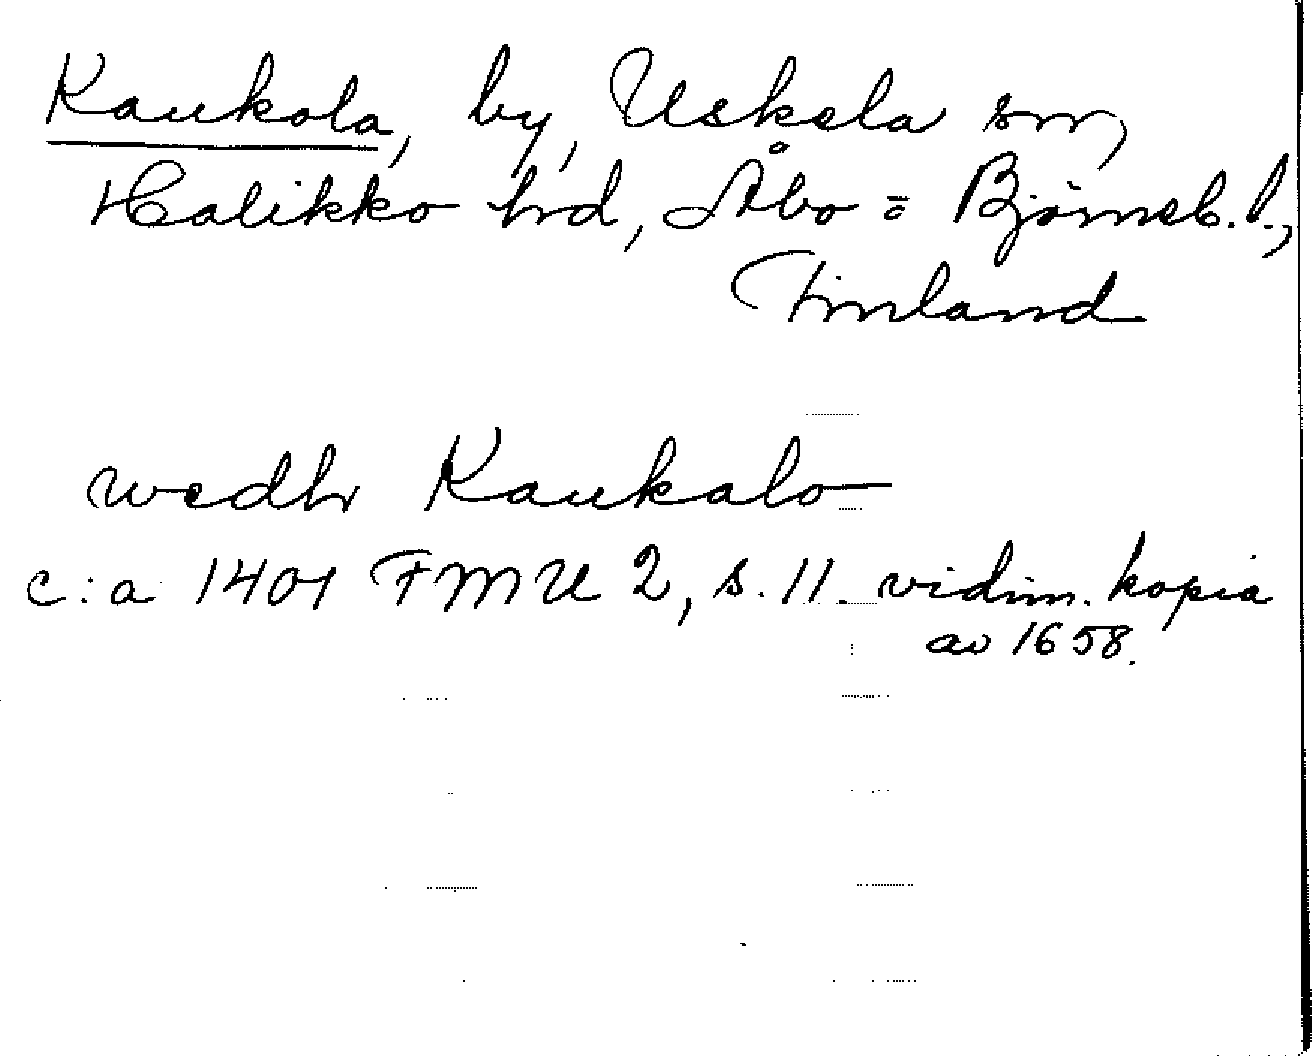 Kaukola, by, Uskela sn,
Halikko hd, Åbo = Björneb. l.,
Finland
wedh Kaukalo
c:a 1401 FMU 2, s. 11. vidim. kopia
av 1658.